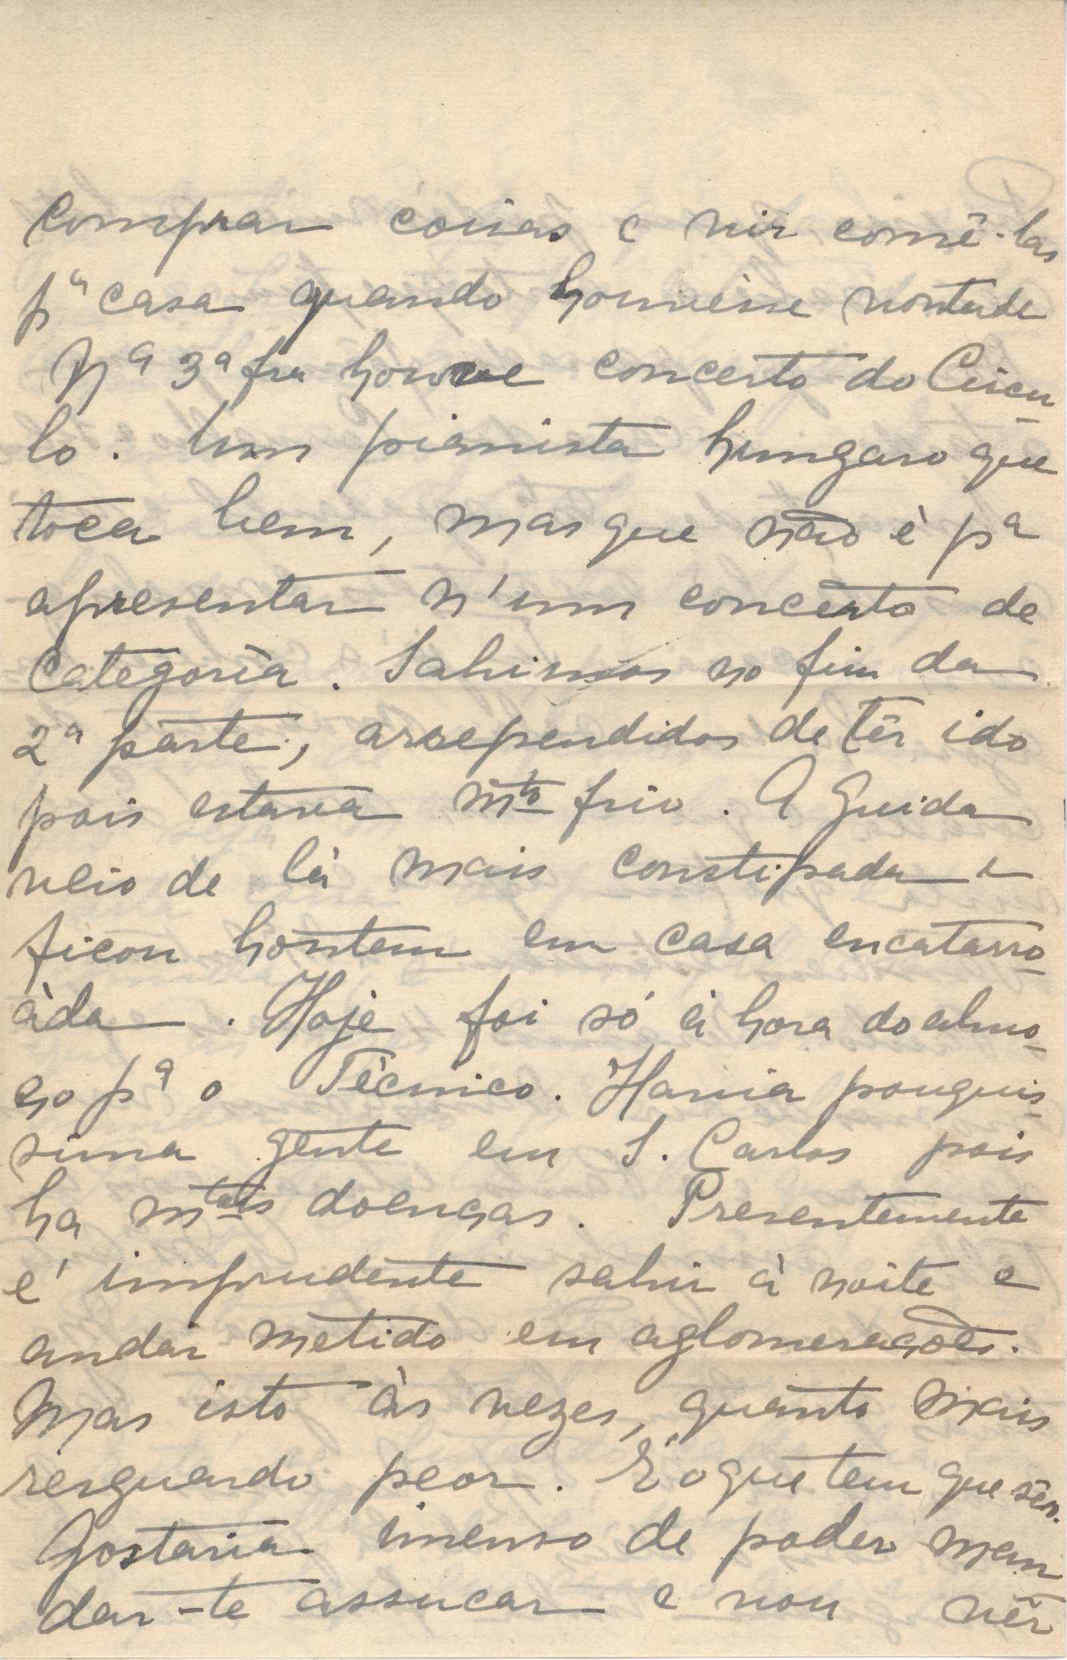 comprar coisas e vir comê-las
pª casa quando houvesse vontade
Nª 3ª fra houve concerto do Circu-
lo. Um pianista hungaro que
toca bem, mas que não é pª
apresentar n'um concerto de
categoria. Sahimos no fim da
2ª parte, arrependidos de têr ido
pois estava mto frio. A Guida
veio de lá mais constipada e
ficou hontem em casa encatarro-
áda. Hoje foi só á hora do almo-
ço pª o Técnico. Havia pouquis-
sima gente em S. Carlos pois
ha mtas doenças. Presentemente
é imprudente sahir á noite e
andar metido em aglomerações.
Mas isto ás vezes, quanto mais
resguardo peor. É o que tem que sêr.
Gostaria imenso de poder man-
dar-te assucar e vou vêr